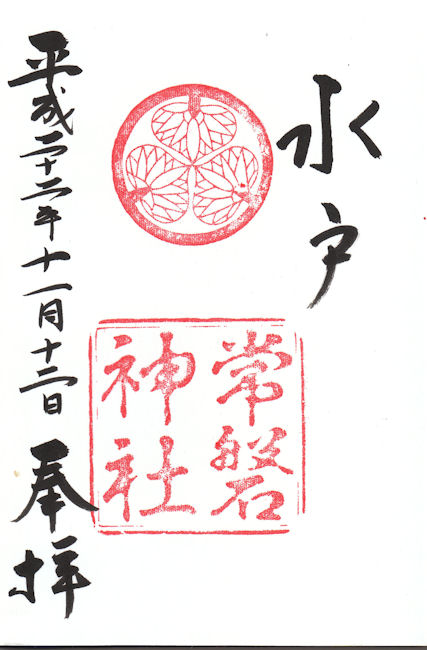 水戸
常磐
神社
平成二十二年十一月十二日 奉拝